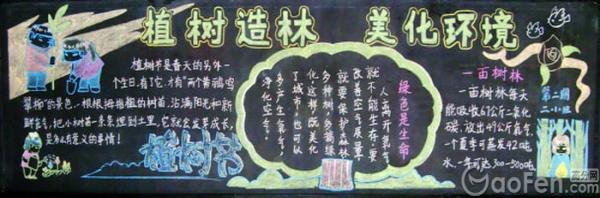 植树造林 美化环境
植树节是春天的另外一
个生日,有了它,才有“两个黄鹂鸣
翠柳”的景色。一根根拇指粗的树苗,沾满阳光和新
鲜空气,把小树苗一束束埋到土里,它就会变更成长,
是多么有意义的事情!
植树节
绿色是生命
人离开氧气
就不能生存,要
改善空气质量
就要保护森林,
多种树,多植绿
化,这样,既美化
了城市,也可以
多产生氧气,
净化空气。
一亩树林
一亩树林每天
能吸收67公斤二氧化
碳,放出49公斤氧气,
一个夏季可蒸发42吨
水,一年可达300—500吨。
第二期
二.小班
GaoFen.com
高分网